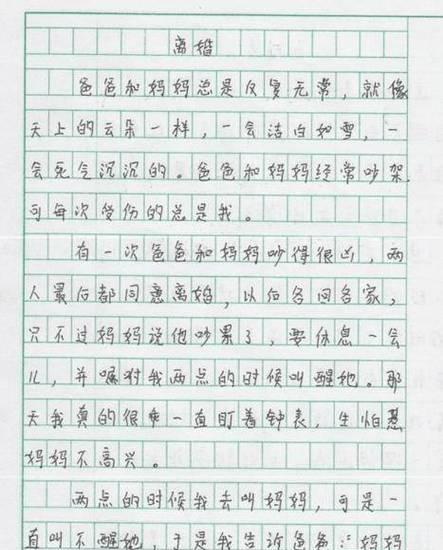 离婚
爸爸和妈妈总是反复无常，就像
天上的云朵一样，一会洁白如雪，一
会死气沉沉的。爸爸和妈妈经常吵架
可每次受伤的总是我。
有一次爸爸和妈妈吵得很凶，两
人最后都同意离婚，以后各回各家，
只不过妈妈说他吵累了，要休息一会
儿，并嘱咐我两点的时候叫醒她。那
天我真的很乖一直盯着钟表，生怕惹
妈妈不高兴。
两点的时候我去叫妈妈，可是一
直叫不醒她，于是我告诉爸爸：妈妈